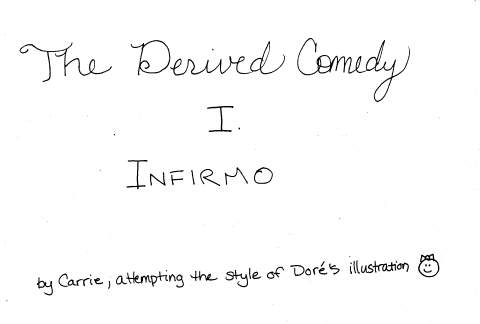 The Derived Comedy
I.
INFIRMO
by Carrie, attempting the style of Doré's illustration